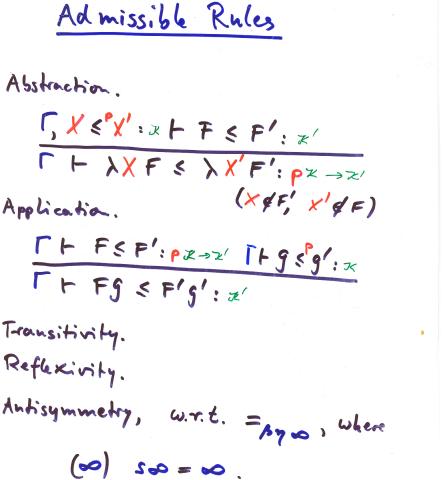 Admissible Rules
Abstraction.
Γ, X ≤ᵖ X' : ϰ ⊢ F ≤ F' : ϰ'
Γ ⊢ λX F ≤ λX'F' : pϰ → ϰ'
(X ∉ F', X' ∉ F)
Application.
Γ ⊢ F ≤ F' : pϰ → ϰ' Γ ⊢ G ≤ᵖ G' : ϰ
Γ ⊢ FG ≤ F'G' : ϰ'
Transitivity.
Reflexivity.
Antisymmetry, w.r.t. =βη∞, where
(∞) s∞ = ∞.